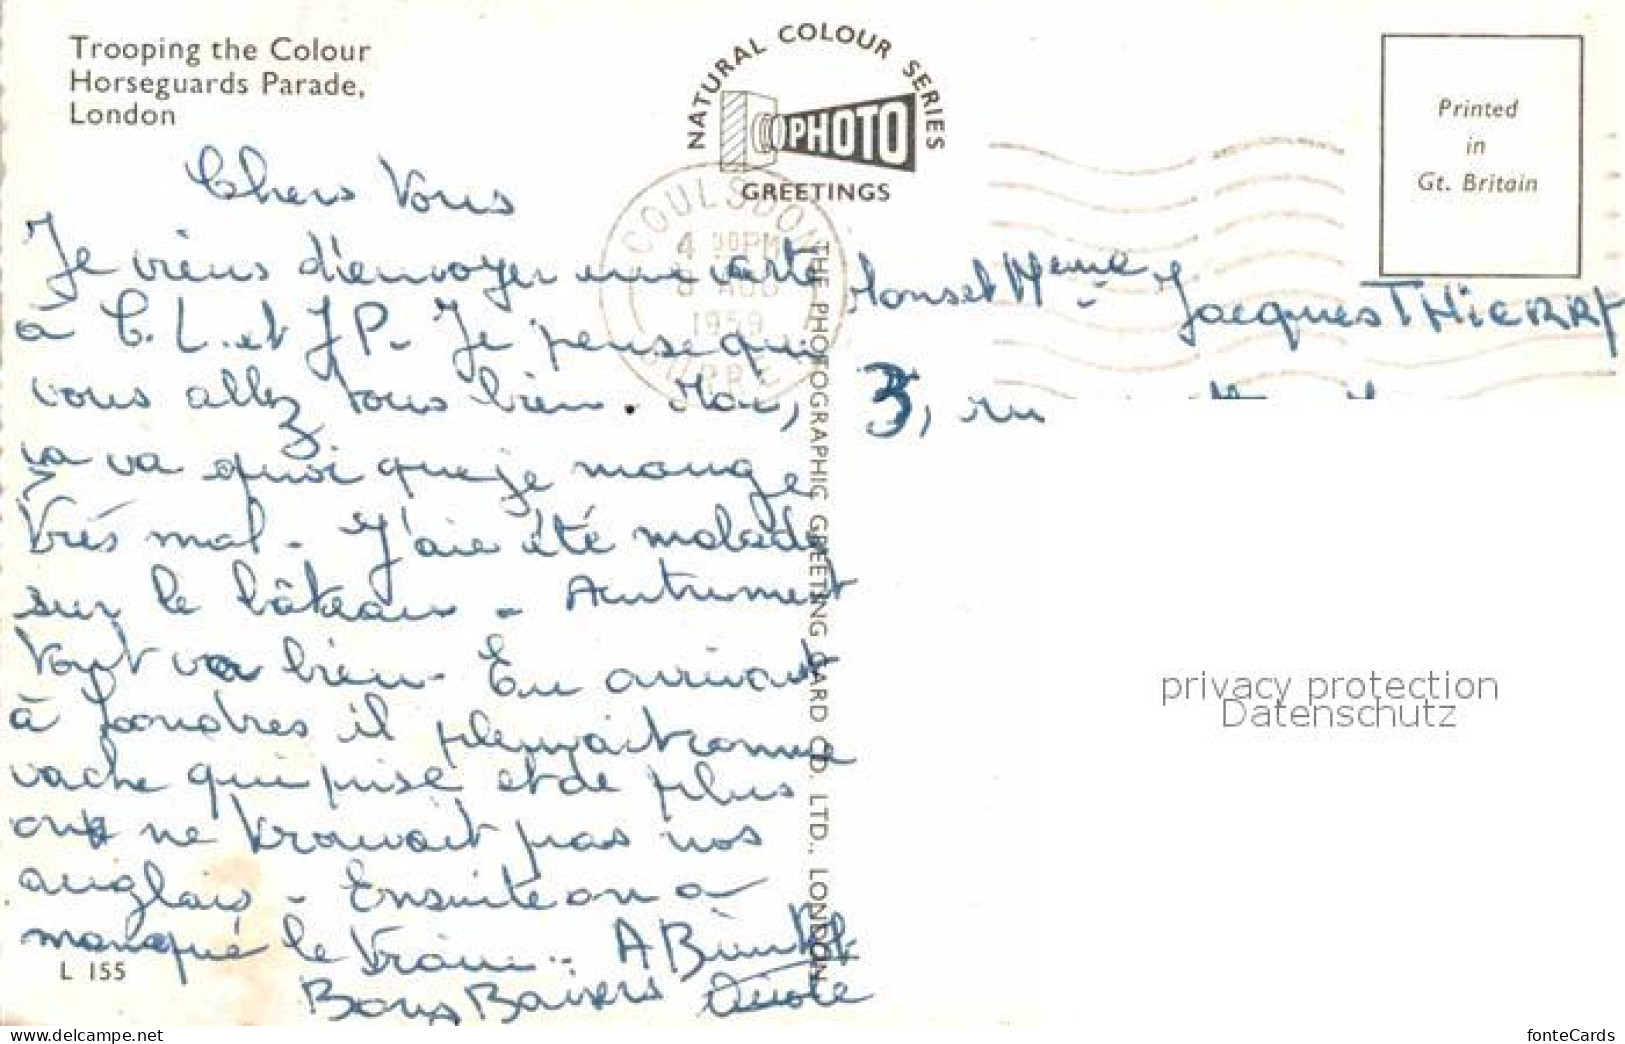 Trooping the Colour
Horseguards Parade,
London
NATURAL COLOUR SERIES
PHOTO
GREETINGS
Printed
in
Gt. Britain
COULSDON
4 30PM
8 AUG
1959
SURREY
THE PHOTOGRAPHIC GREETING CARD CO. LTD., LONDON
Chers Vous
Je viens d'envoyer une carte
à C. L. et J P. Je pense que
vous allez tous bien. Moi,
ça va quoi que je mange
très mal - J'aie été malade
sur le bâteau - Autrement
tout va bien - En arrivant
à Londres il pleuvait comme
vache qui pise et de plus
on ne trouvait pas nos
anglais - Ensuite on a
manqué le train - A Bientôt
Bons Baisers
L 155
Monset Meme Jacques THIERRY
3, ru
privacy protection
Datenschutz
fonteCards
www.delcampe.net